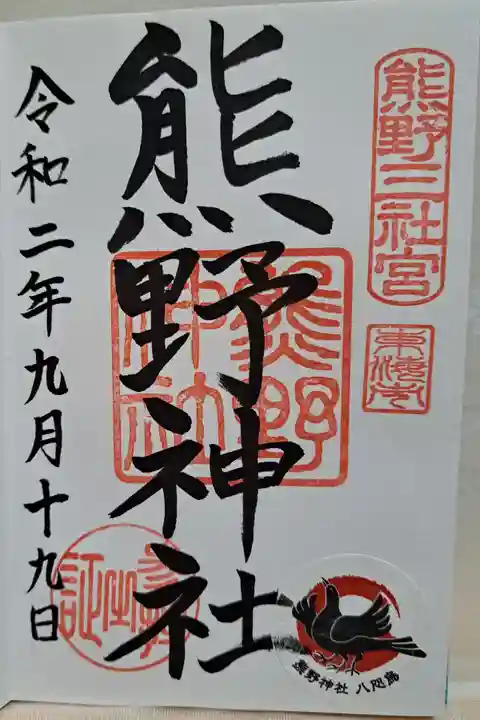 熊野三社宮
東海市
熊野神社
熊野神社
令和二年九月十九日
参拝証
熊野神社 八咫烏